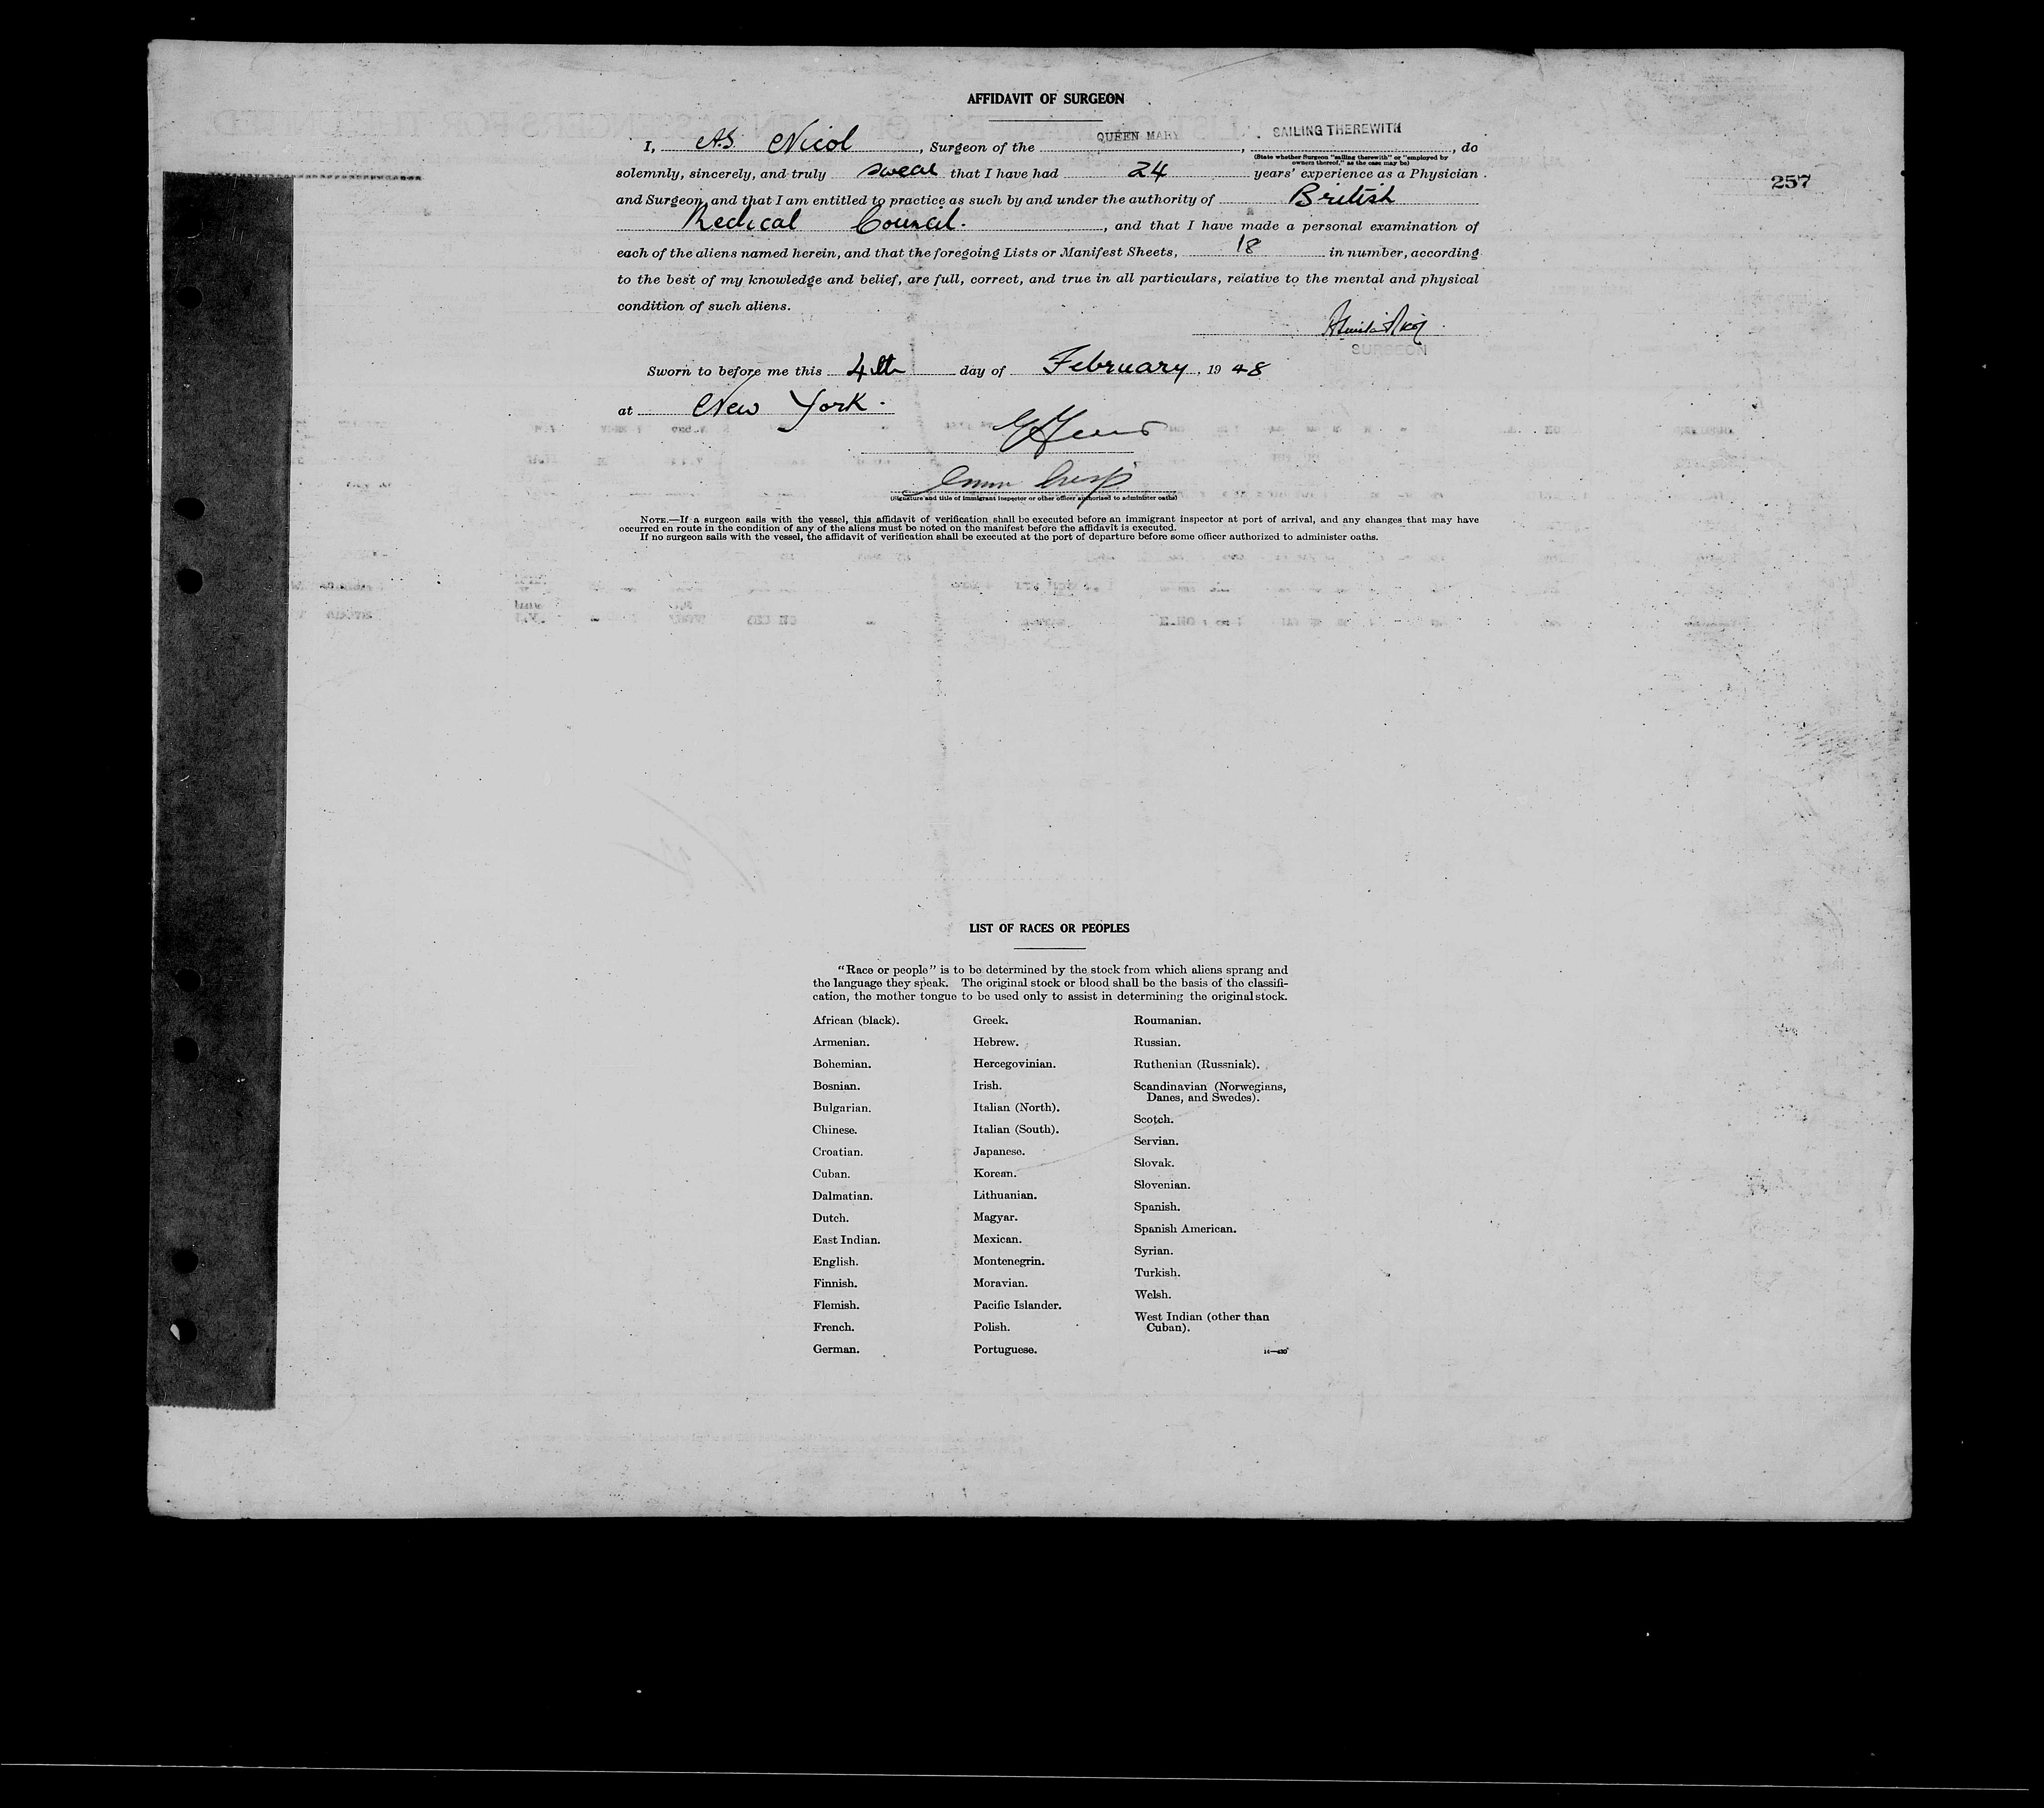 AFFIDAVIT OF SURGEON
I, AS Nicol, Surgeon of the QUEEN MARY, SAILING THEREWITH, do
(State whether Surgeon "sailing therewith" or "employed by
owners thereof," as the case may be)
solemnly, sincerely, and truly swear that I have had 24 years' experience as a Physician
257
and Surgeon, and that I am entitled to practice as such by and under the authority of British
Medical Council., and that I have made a personal examination of
each of the aliens named herein, and that the foregoing Lists or Manifest Sheets, 18 in number, according
to the best of my knowledge and belief, are full, correct, and true in all particulars, relative to the mental and physical
condition of such aliens.
SURGEON
Sworn to before me this 4th day of February, 1948
at New York.
(Signature and title of immigrant inspector or other officer authorized to administer oaths)
NOTE.—If a surgeon sails with the vessel, this affidavit of verification shall be executed before an immigrant inspector at port of arrival, and any changes that may have
occurred en route in the condition of any of the aliens must be noted on the manifest before the affidavit is executed.
If no surgeon sails with the vessel, the affidavit of verification shall be executed at the port of departure before some officer authorized to administer oaths.
LIST OF RACES OR PEOPLES
"Race or people" is to be determined by the stock from which aliens sprang and
the language they speak. The original stock or blood shall be the basis of the classifi-
cation, the mother tongue to be used only to assist in determining the original stock.
African (black).
Armenian.
Bohemian.
Bosnian.
Bulgarian.
Chinese.
Croatian.
Cuban.
Dalmatian.
Dutch.
East Indian.
English.
Finnish.
Flemish.
French.
German.
Greek.
Hebrew.
Hercegovinian.
Irish.
Italian (North).
Italian (South).
Japanese.
Korean.
Lithuanian.
Magyar.
Mexican.
Montenegrin.
Moravian.
Pacific Islander.
Polish.
Portuguese.
Roumanian.
Russian.
Ruthenian (Russniak).
Scandinavian (Norwegians,
Danes, and Swedes).
Scotch.
Servian.
Slovak.
Slovenian.
Spanish.
Spanish American.
Syrian.
Turkish.
Welsh.
West Indian (other than
Cuban).